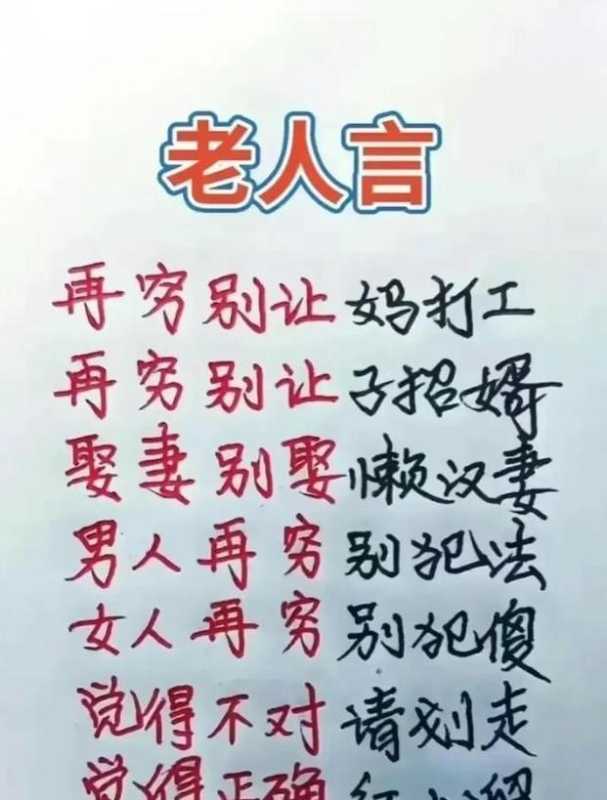 老人言
再穷别让妈打工
再穷别让子招婿
娶妻别娶懒汉妻
男人再穷别犯法
女人再穷别犯傻
觉得不对请划走
觉得正确